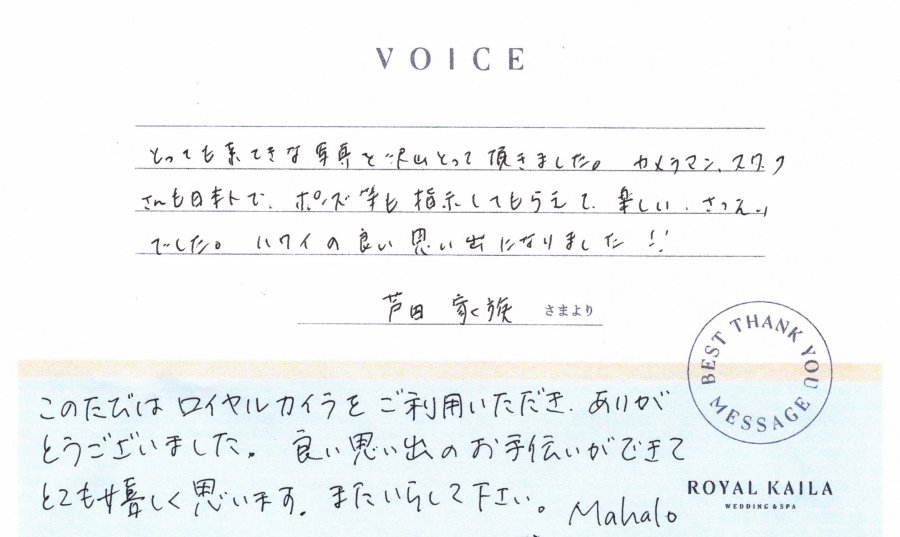 VOICE
とっても素てきな写真を沢山とって頂きました。カメラマン、スタッフ
さんも日本人で、ポーズ等も指示してもらえて、楽しい、さつえい
でした。ハワイの良い思い出になりました!!
芦田 家族 さまより
BEST THANK YOU MESSAGE
このたびは ロイヤルカイラを ご利用いただき、ありが
とうございました。良い思い出の お手伝いができて
とても嬉しく思います。またいらして下さい。
Mahalo
ROYAL KAILA
WEDDING & SPA